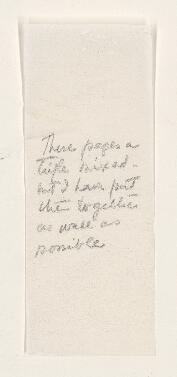 These pages a
trifle mixed -
but I have put
them together
as well as
possible